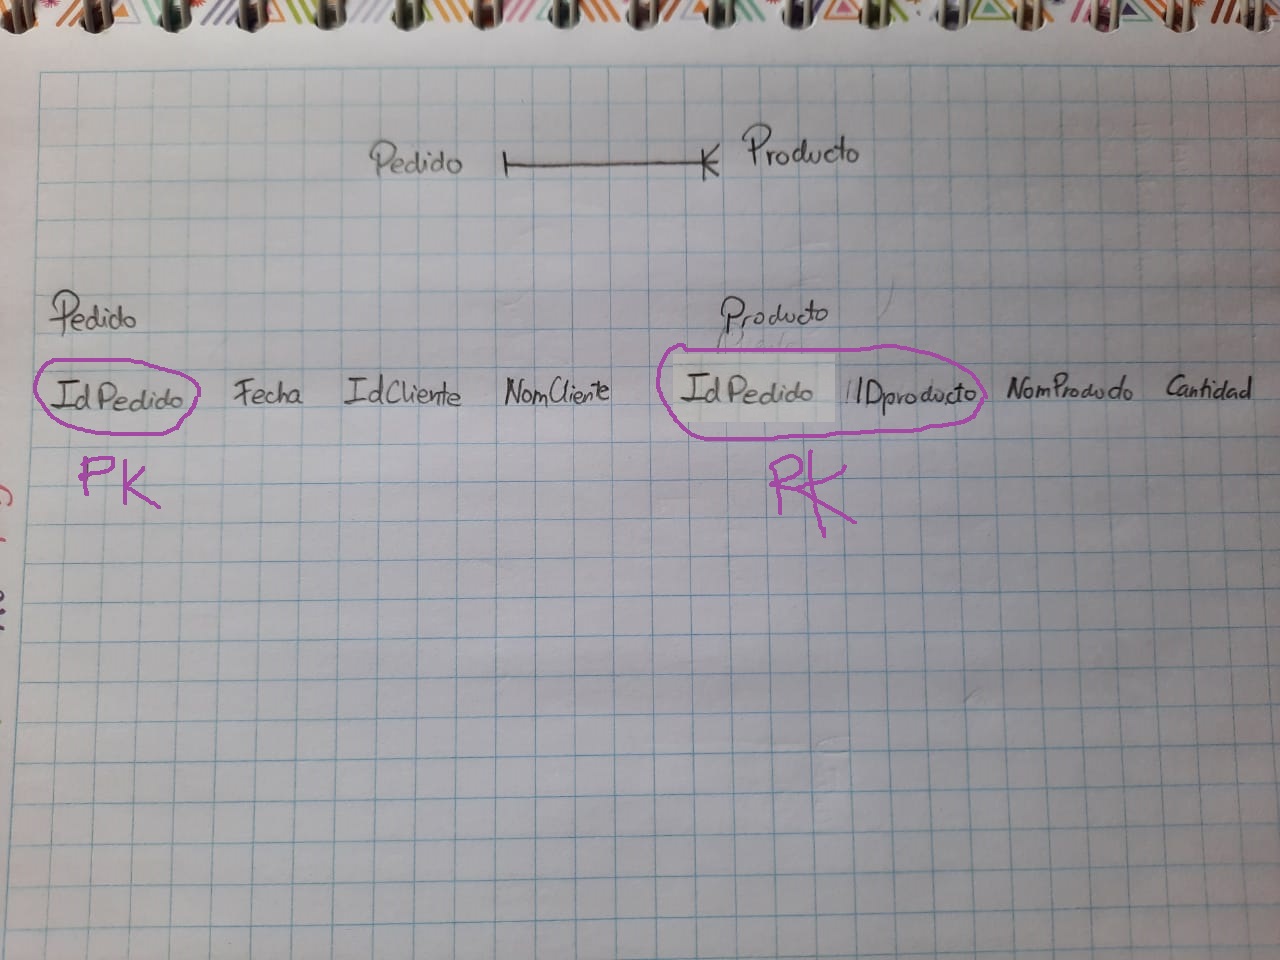 Pedido Producto
Pedido Producto
IdPedido Fecha IdCliente NomCliente IdPedido IDproducto NomProducto Cantidad
PK PK